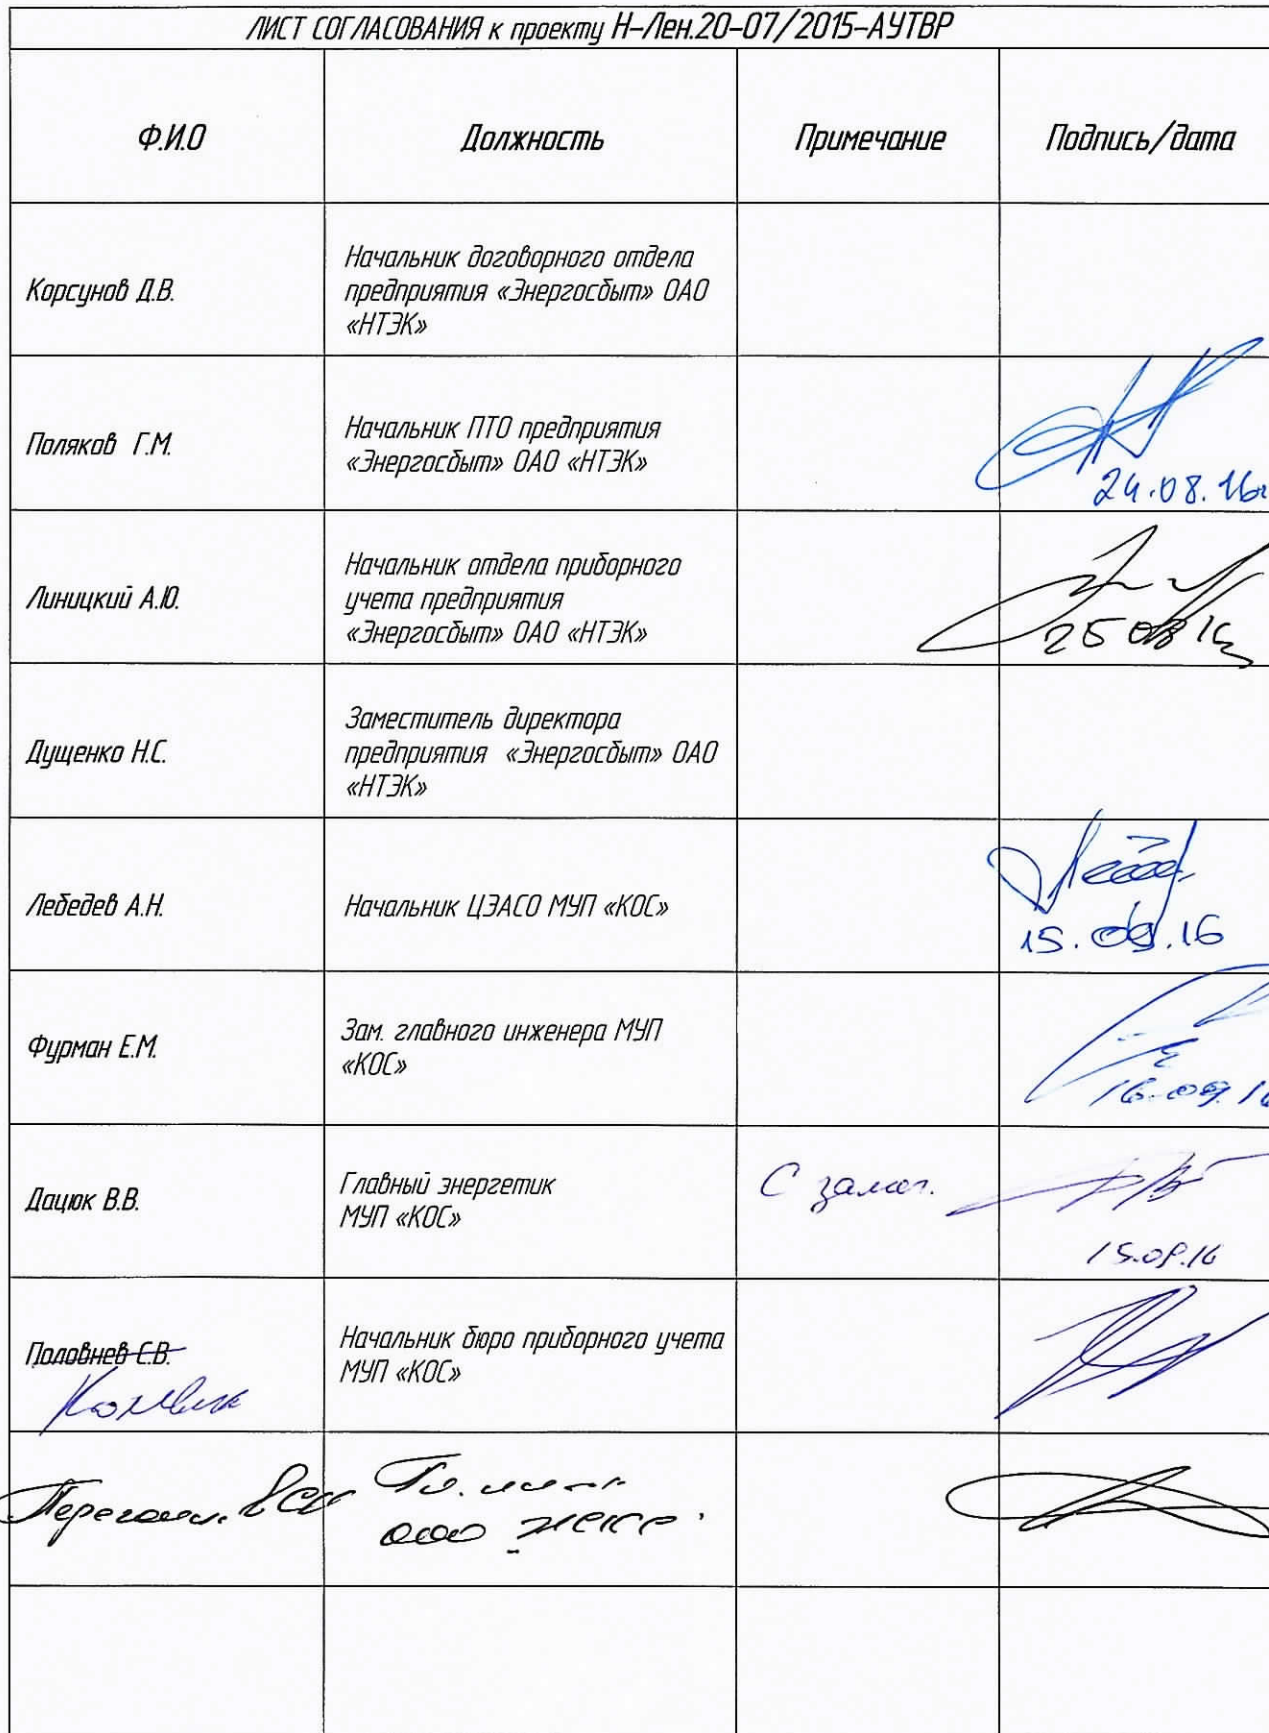 ЛИСТ СОГЛАСОВАНИЯ к проекту Н-Лен.20-07/2015-АУТВР
Ф.И.О Должность Примечание Подпись/дата
Корсунов Д.В.
Начальник договорного отдела
предприятия «Энергосбыт» ОАО
«НТЭК»
Поляков Г.М.
Начальник ПТО предприятия
«Энергосбыт» ОАО «НТЭК»
24.08.16г
Линицкий А.Ю.
Начальник отдела приборного
учета предприятия
«Энергосбыт» ОАО «НТЭК»
25 08 16
Дущенко Н.С.
Заместитель директора
предприятия «Энергосбыт» ОАО
«НТЭК»
Лебедев А.Н.
Начальник ЦЭАСО МУП «КОС»
15.09.16
Фурман Е.М.
Зам. главного инженера МУП
«КОС»
16.09.16
Дацюк В.В.
Главный энергетик
МУП «КОС»
С замеч.
15.09.16
Половнев С.В.
Начальник бюро приборного учета
МУП «КОС»
Гл.
ООО